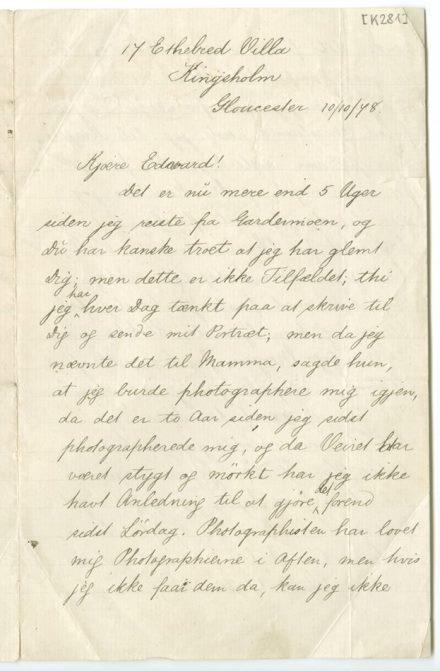 [K281]
17 Ethebred Villa
Kingsholm
Gloucester 10/10/78
Kjære Edevard!
Det er nu mere end 5 Uger
siden jeg reiste fra Gardermoen, og
Du har kanske troet at jeg har glemt
Dig; men dette er ikke Tilfældet; thi
har
jeg hver Dag tænkt paa at skrive til
Dig og sende mit Portræt; men da jeg
nævnte det til Mamma, sagde hun,
at jeg burde photographere mig igjen,
da det er to Aar siden jeg sidst
photographerede mig, og da Veiret har
været stygt og mörkt har jeg ikke
havt Anledning til at gjöre det forend
sidst Lördag. Photographisten har lovet
mig Photographierne i Aften, men hvis
jeg ikke faar dem da, kan jeg ikke